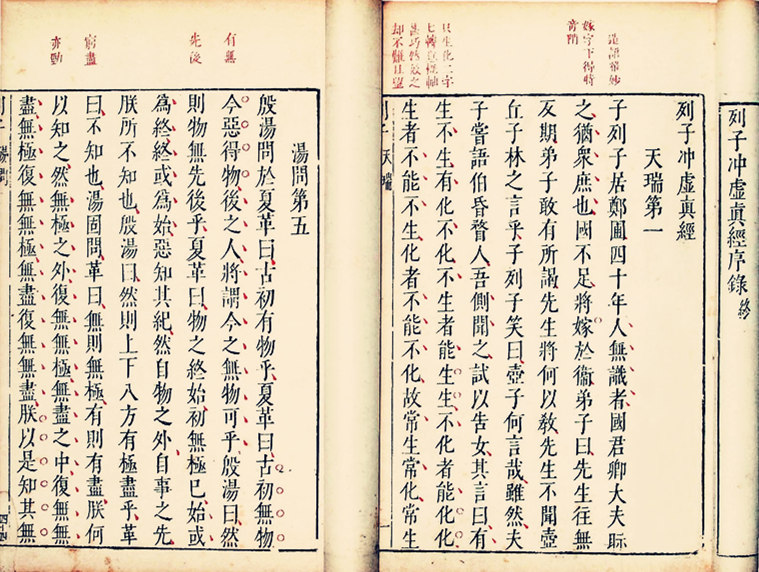 列子冲虛真經序錄 終
列子冲虛真經
天瑞第一
嫁字下得特
子列子居鄭圃四十年人無識者國君卿大夫眎
之猶衆庶也國不足將嫁於衞弟子曰先生徃無
反期弟子敢有所謁先生將何以敎先生不聞壺
丘子林之言乎子列子笑曰壺子何言哉雖然夫
子嘗語伯昏瞀人吾側聞之試以告女其言曰有
只生化二字
甚巧然效之
却不難且
生不生有化不化不生者能生生不化者能化化
生者不能不生化者不能不化故常生常化常
列子 天瑞
湯問第五
有無
先後
窮盡
亦勁
殷湯問於夏革曰古初有物乎夏革曰古初無物
今惡得物後之人將謂今之無物可乎殷湯曰然
則物無先後乎夏革曰物之終始初無極巳始或
為終終或為始惡知其紀然自物之外自事之先
朕所不知也殷湯曰然則上下八方有極盡乎革
曰不知也湯固問革曰無則無極有則有盡朕何
以知之然無極之外復無無極無盡之中復無無
盡無極復無無極無盡復無無盡朕以是知其無